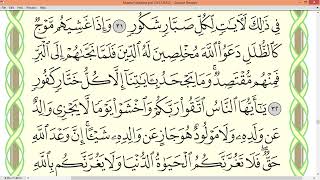 فِي ذَٰلِكَ لَآيَاتٍ لِّكُلِّ صَبَّارٍ شَكُورٍ ٣١ وَإِذَا غَشِيَهُم مَّوْجٌ
كَالظُّلَلِ دَعَوُا اللَّهَ مُخْلِصِينَ لَهُ الدِّينَ فَلَمَّا نَجَّاهُمْ إِلَى الْبَرِّ
فَمِنْهُم مُّقْتَصِدٌ وَمَا يَجْحَدُ بِآيَاتِنَا إِلَّا كُلُّ خَتَّارٍ كَفُورٍ
٣٢ يَا أَيُّهَا النَّاسُ اتَّقُوا رَبَّكُمْ وَاخْشَوْا يَوْمًا لَّا يَجْزِي وَالِدٌ
عَن وَلَدِهِ وَلَا مَوْلُودٌ هُوَ جَازٍ عَن وَالِدِهِ شَيْئًا إِنَّ وَعْدَ اللَّهِ
حَقٌّ فَلَا تَغُرَّنَّكُمُ الْحَيَاةُ الدُّنْيَا وَلَا يَغُرَّنَّكُم بِاللَّهِ